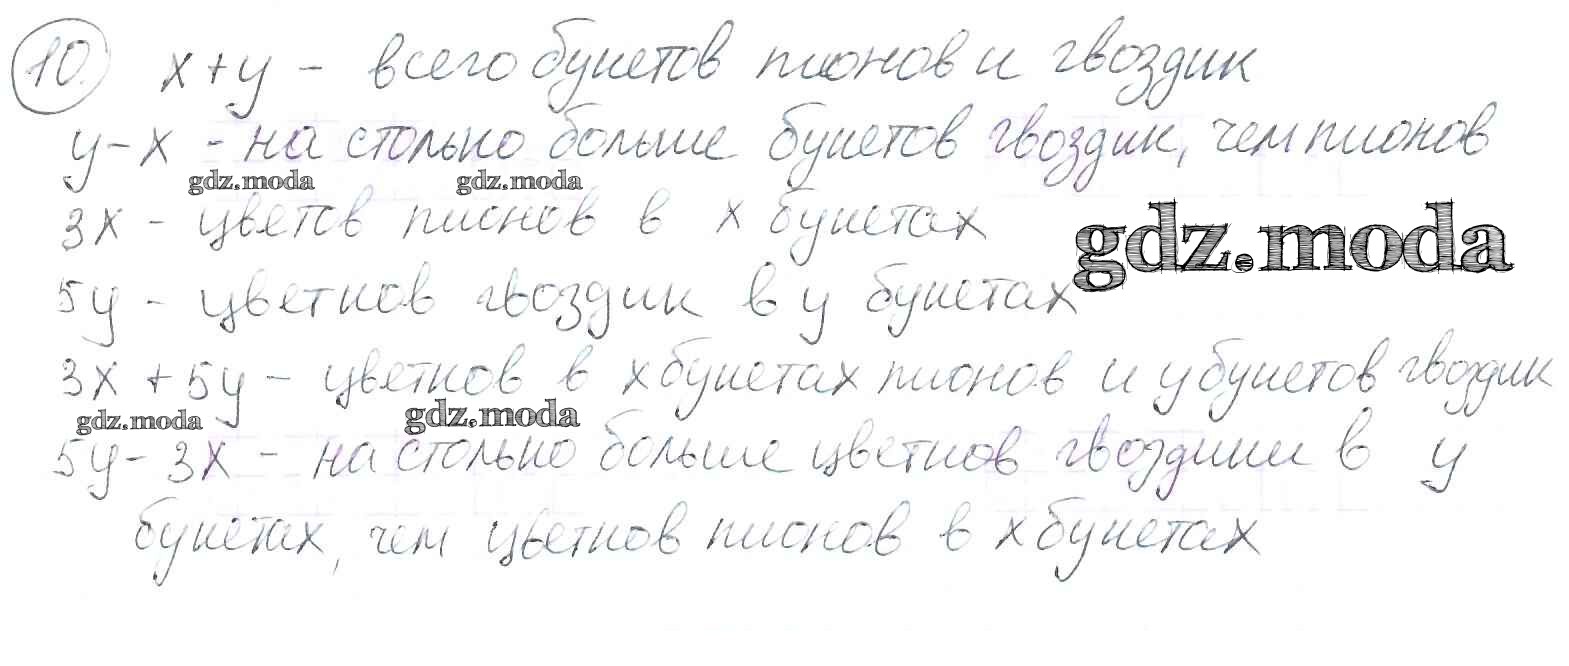 10. x+y - всего букетов пионов и гвоздик
y-x - на столько больше букетов гвоздик, чем пионов
gdz.moda gdz.moda
3x - цветов пионов в x букетах
gdz.moda
5y - цветков гвоздик в y букетах
3x + 5y - цветков в x букетах пионов и y букетов гвоздик
gdz.moda gdz.moda
5y - 3x - на столько больше цветков гвоздики в y
букетах, чем цветков пионов в x букетах